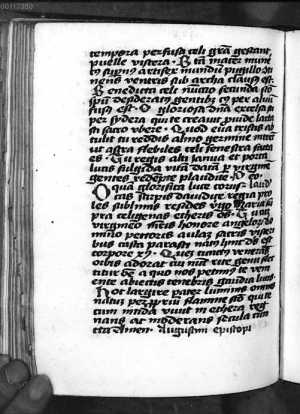 tempora perfusa celi grãm gestant
puelle viscera. Btã mater mune
ris supernus artifex mundū pugillo cōti
nens ventris sub archa clausus est.
Benedicta celi nūctio fecunda sco
spū desideratus gentibus per aluū
fusus est. O gloriosa dña excelsa su
per sydera qui te creauit lacta
sti sacro ubere. Quod eua tristis abs
tulit tu reddis almo germine intrent
ut astra flebiles celi fenestra facta
es. Tu regis alti ianua et porta
lucis fulgida vitā datā p virginē
gentes redēpte plaudite.
O quā glorifica luce coruscas
stirpis dauidice regia pro
les sublimis residens virgo maria su
pra celigenas etheris os. Tu cū
virgineo mater honore angelorū do
mino pectoris aulam sacris visceri
bus casta parasti natus hinc ds est
corpore xp̄s. Quem cunctus venerans
orbis adorat cui nunc rite genu flec
titur ōe a quo nos petimus te veni
ente abiectis tenebris gaudia lucis.
Hoc largire pater luminis omnis
natum per ppriū flamine sco qui te
cum nitida viuit in ethera reg
nans ac moderans secula cun
cta Amen. Augustini episcopi